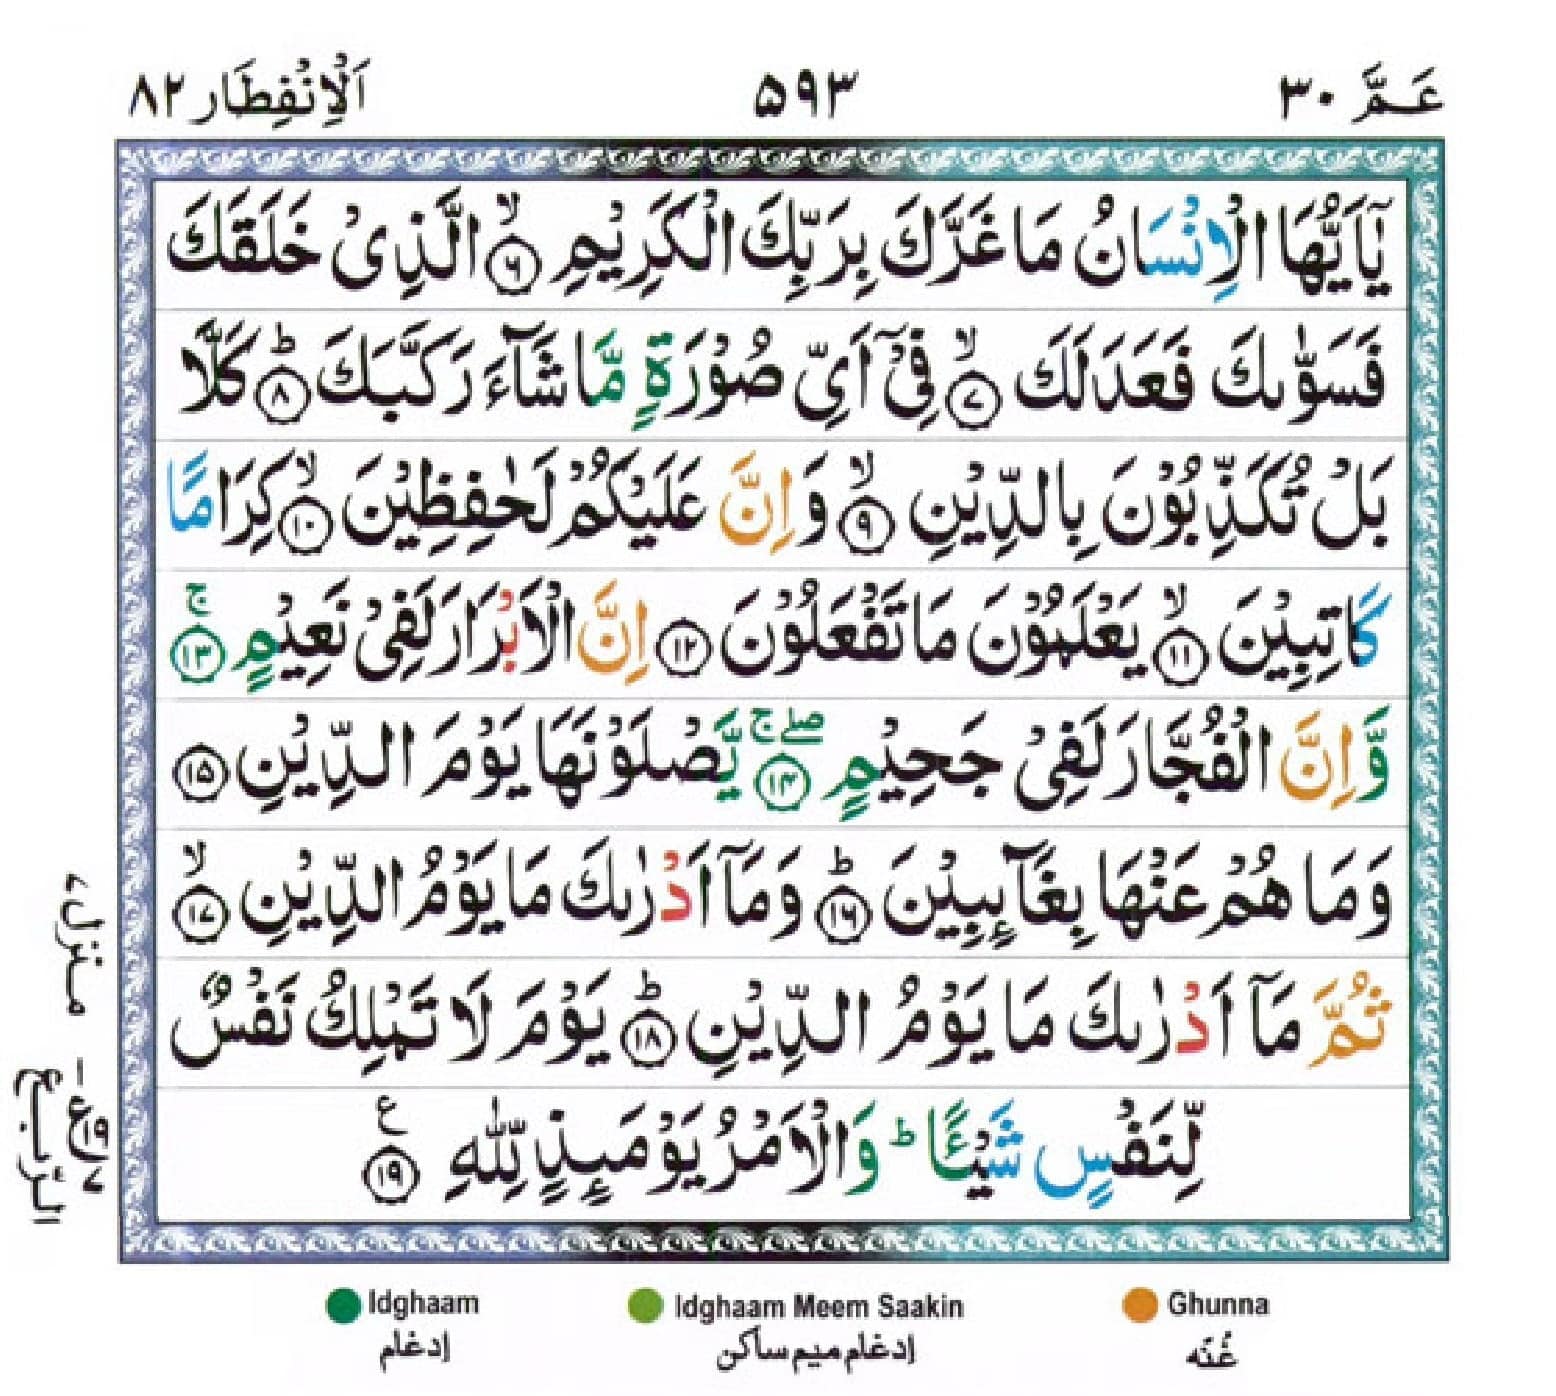 عَمَّ ۳۰
۵۹۳
اَلْاِنْفِطَار ۸۲
يٰۤاَيُّهَا الْاِنْسَانُ مَا غَرَّكَ بِرَبِّكَ الْكَرِيْمِ ۙ﴿۶﴾ الَّذِىْ خَلَقَكَ
فَسَوّٰٮكَ فَعَدَلَكَ ۙ﴿۷﴾ فِىْۤ اَىِّ صُوْرَةٍ مَّا شَآءَ رَكَّبَكَ ؕ﴿۸﴾ كَلَّا
بَلْ تُكَذِّبُوْنَ بِالدِّيْنِ ۙ﴿۹﴾ وَاِنَّ عَلَيْكُمْ لَحٰفِظِيْنَ ۙ﴿۱۰﴾ كِرَامًا
كَاتِبِيْنَ ۙ﴿۱۱﴾ يَعْلَمُوْنَ مَا تَفْعَلُوْنَ ﴿۱۲﴾ اِنَّ الْاَبْرَارَ لَفِىْ نَعِيْمٍ ۚ﴿۱۳﴾
وَّاِنَّ الْفُجَّارَ لَفِىْ جَحِيْمٍ ۖۚ﴿۱۴﴾ يَّصْلَوْنَهَا يَوْمَ الدِّيْنِ ﴿۱۵﴾
وَمَا هُمْ عَنْهَا بِغَآٮِٕبِيْنَ ؕ﴿۱۶﴾ وَمَاۤ اَدْرٰٮكَ مَا يَوْمُ الدِّيْنِ ۙ﴿۱۷﴾
ثُمَّ مَاۤ اَدْرٰٮكَ مَا يَوْمُ الدِّيْنِ ؕ﴿۱۸﴾ يَوْمَ لَا تَمْلِكُ نَفْسٌ
لِّنَفْسٍ شَيْــًٔا ؕ وَالْاَمْرُ يَوْمَٮِٕذٍ لِّلّٰهِ ﴿۱۹﴾ ع
منزل ۷
الرّبع
Idghaam
ادغام
Idghaam Meem Saakin
ادغام ميم ساكن
Ghunna
غُنّه